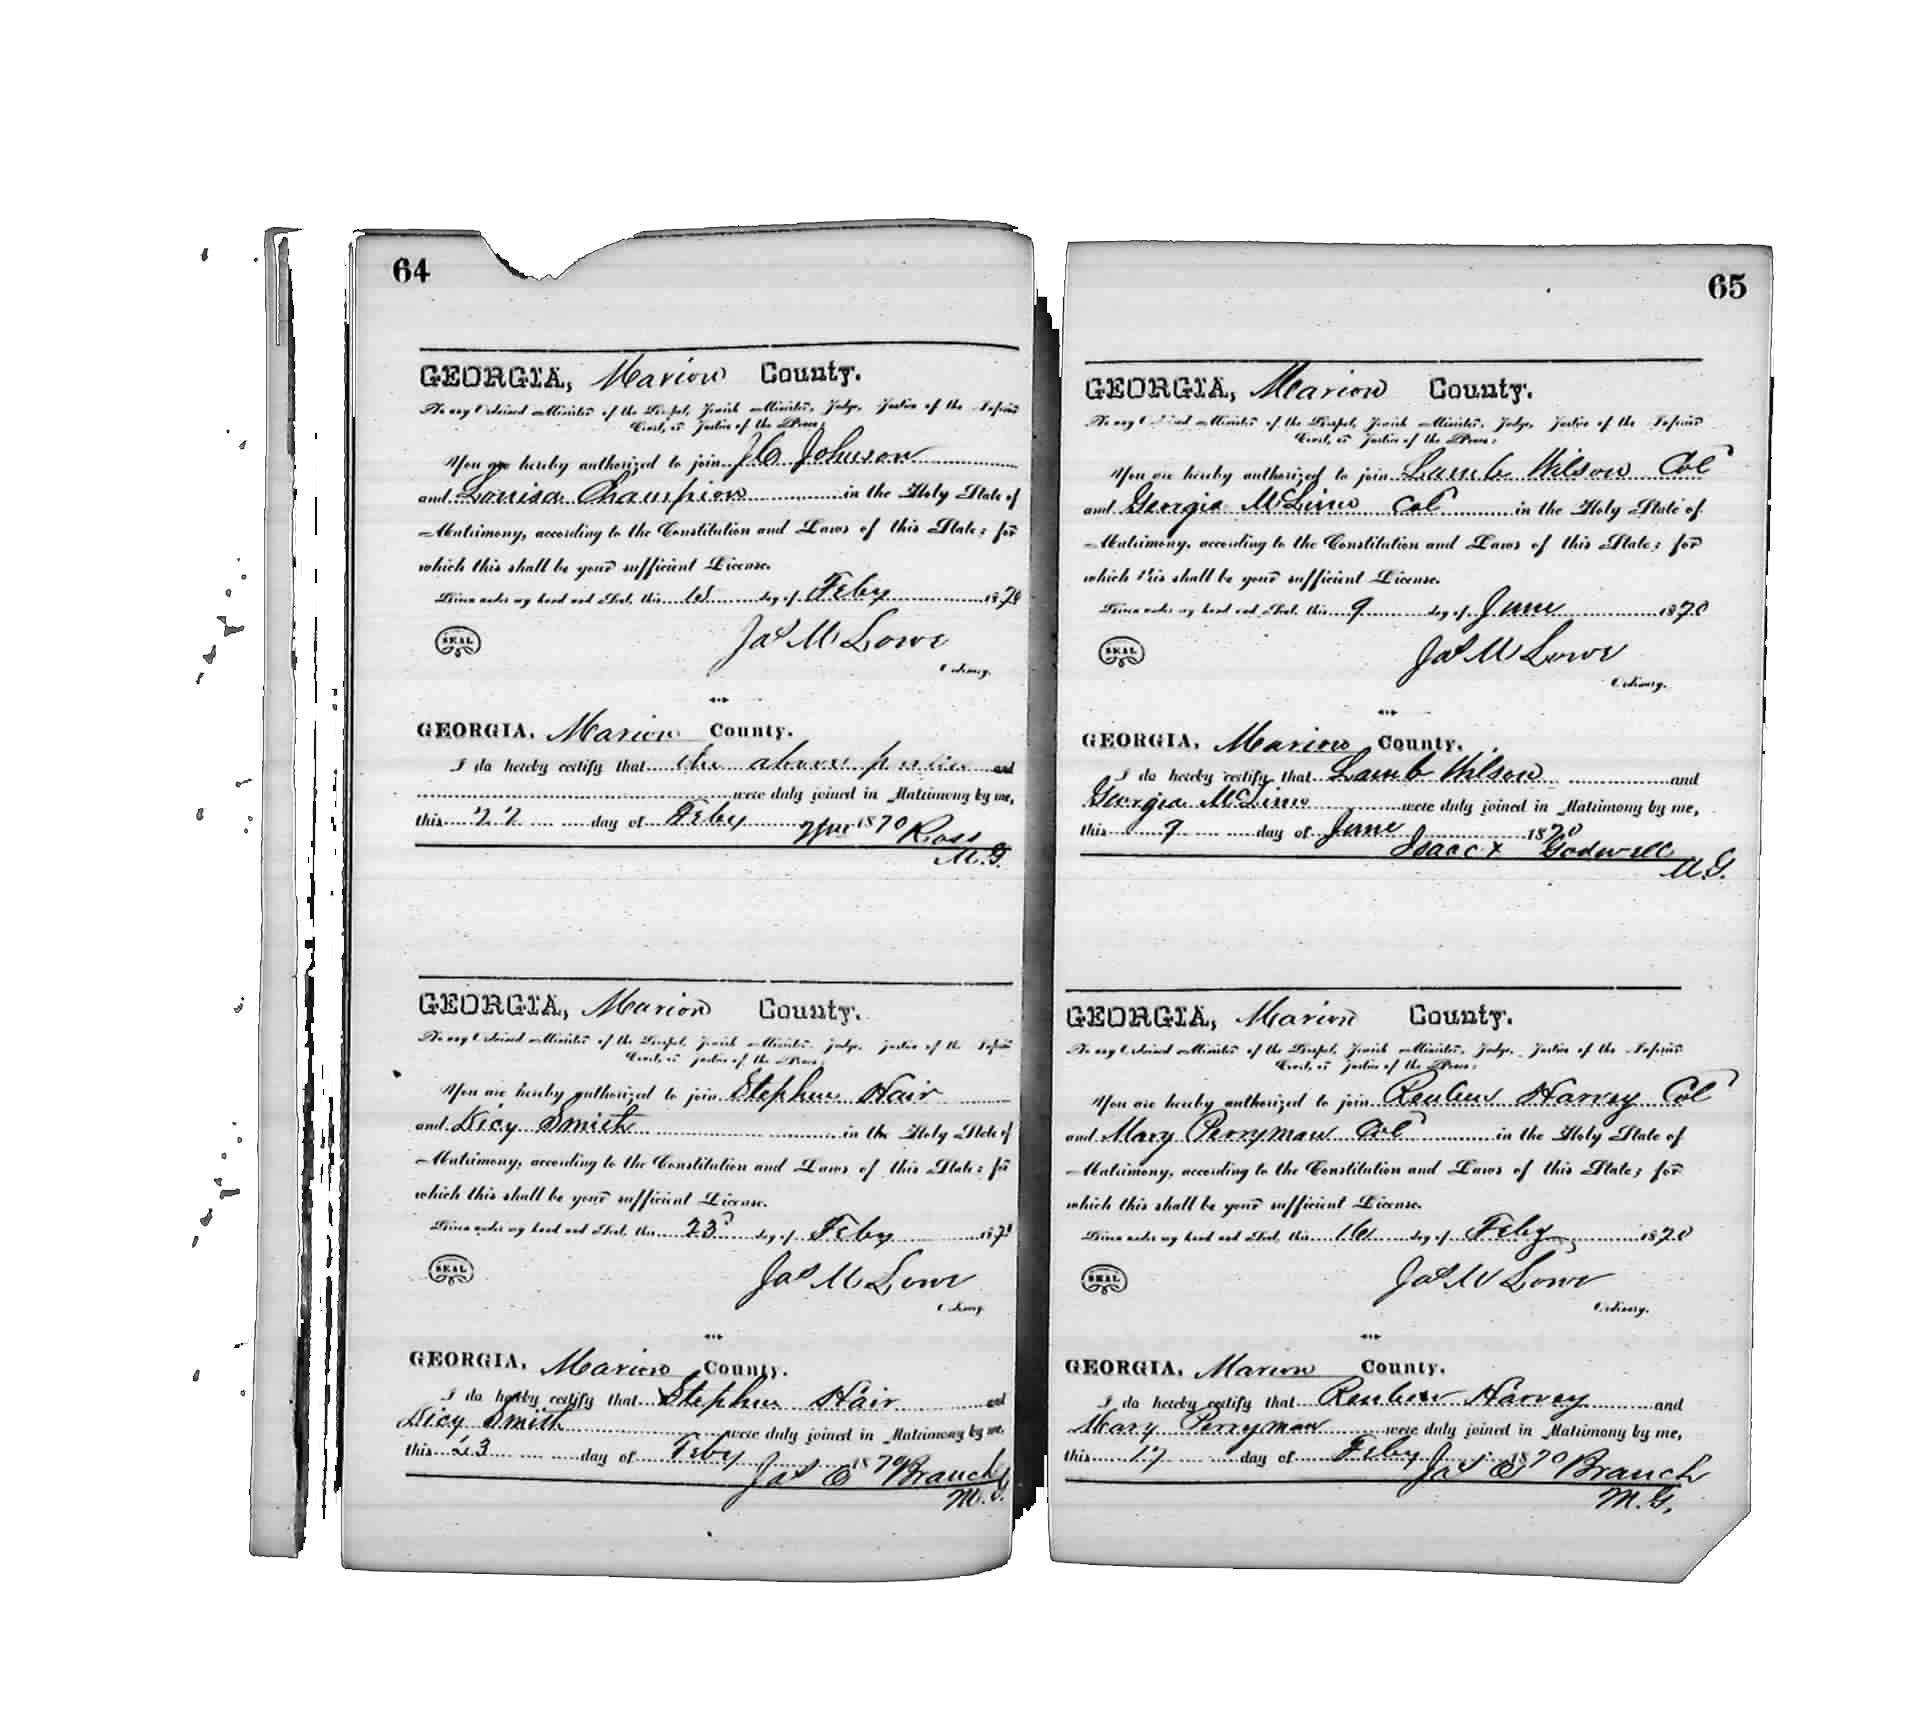 64
GEORGIA, Marion County.
To any Ordained Minister of the Gospel, Jewish Minister, Judge, Justice of the Inferior
Court, or Justice of the Peace:
You are hereby authorized to join J C Johnson
and Louisa Champion in the Holy State of
Matrimony, according to the Constitution and Laws of this State; for
which this shall be your sufficient License.
Given under my hand and Seal, this day of Feby 1870
Jas M Lowe
SEAL
Ordinary.
GEORGIA, Marion County.
I do hereby certify that the above parties and
were duly joined in Matrimony by me,
this 22 day of Feby 1870
Wm Ross
M.G.
GEORGIA, Marion County.
To any Ordained Minister of the Gospel, Jewish Minister, Judge, Justice of the Inferior
Court, or Justice of the Peace:
You are hereby authorized to join Stephen Hair
and Dicy Smith in the Holy State of
Matrimony, according to the Constitution and Laws of this State; for
which this shall be your sufficient License.
Given under my hand and Seal, this 23d day of Feby 1870
Jas M Lowe
SEAL
Ordinary.
GEORGIA, Marion County.
I do hereby certify that Stephen Hair and
Dicy Smith were duly joined in Matrimony by me,
this 23 day of Feby 1870
Jas E Branch
M.G.
65
GEORGIA, Marion County.
To any Ordained Minister of the Gospel, Jewish Minister, Judge, Justice of the Inferior
Court, or Justice of the Peace:
You are hereby authorized to join Lamb Wilson Col
and Georgia McLinn Col in the Holy State of
Matrimony, according to the Constitution and Laws of this State; for
which this shall be your sufficient License.
Given under my hand and Seal, this 9 day of June 1870
Jas M Lowe
SEAL
Ordinary.
GEORGIA, Marion County.
I do hereby certify that Lamb Wilson and
Georgia McLinn were duly joined in Matrimony by me,
this 9 day of June 1870
Isaac x Godwell
M.G.
GEORGIA, Marion County.
To any Ordained Minister of the Gospel, Jewish Minister, Judge, Justice of the Inferior
Court, or Justice of the Peace:
You are hereby authorized to join Reuben Harvey Col
and Mary Perryman Col in the Holy State of
Matrimony, according to the Constitution and Laws of this State; for
which this shall be your sufficient License.
Given under my hand and Seal, this 16 day of Feby 1870
Jas M Lowe
SEAL
Ordinary.
GEORGIA, Marion County.
I do hereby certify that Reuben Harvey and
Mary Perryman were duly joined in Matrimony by me,
this 17 day of Feby 1870
Jas E Branch
M.G.